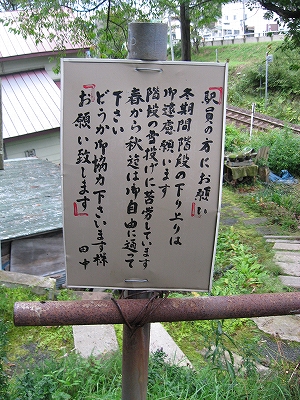 駅員の方にお願い
冬期間階段の下り上りは
御遠慮願います
階段の雪投げに苦労しています
春から秋迄は御自由に通って
下さい
どうか御協力下さいます様
お願い致します
田中